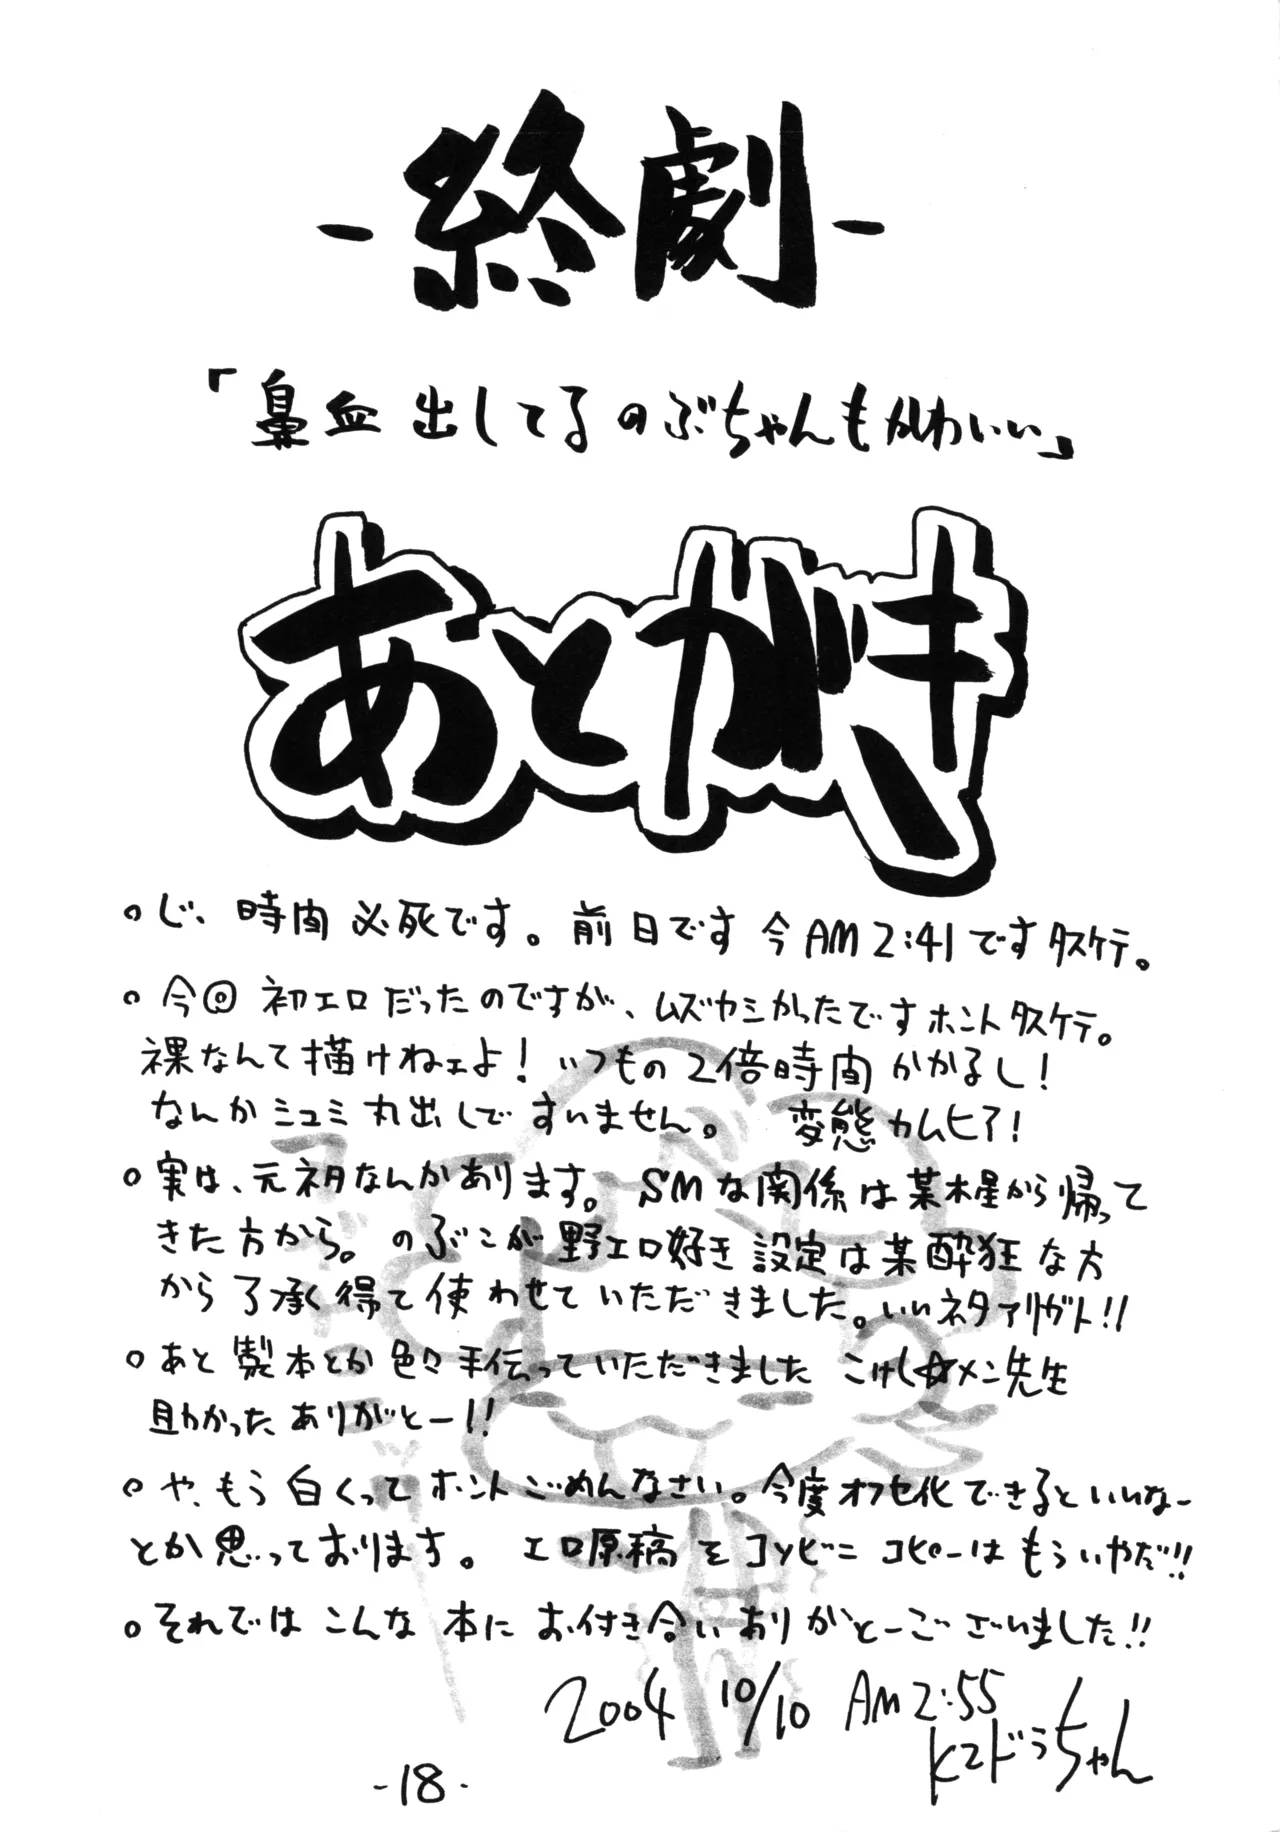 -終劇-
「鼻血出してるのぶちゃんもかわいい」
あとがき
。じ、時間必死です。前日です 今AM2:41です タスケテ。
。今回 初エロだったのですが、ムズカシかったですホントタスケテ。
裸なんて描けねェよ!いつもの2倍時間かかるし!
なんかミュミ丸出しですいません。 変態カムヒア!
。実は、元ネタなんかあります。SMな関係は某木星から帰って
きた方から。のぶこが野エロ好き設定は某酔狂な方
から了承得て使わせていただきました。いいネタアリガト!!
。あと製本とか色々手伝っていただきました こけし☆メン先生
助かったありがとー!!
。や、もう白くってホントごめんなさい。今度オフセ化できるといいなー
とか思っております。 エロ原稿をコンビニコピーはもういやだ!!
。それではこんな本にお付き合いありがとーございました!!
2004 10/10 AM2:55
K2ドうちゃん
-18-